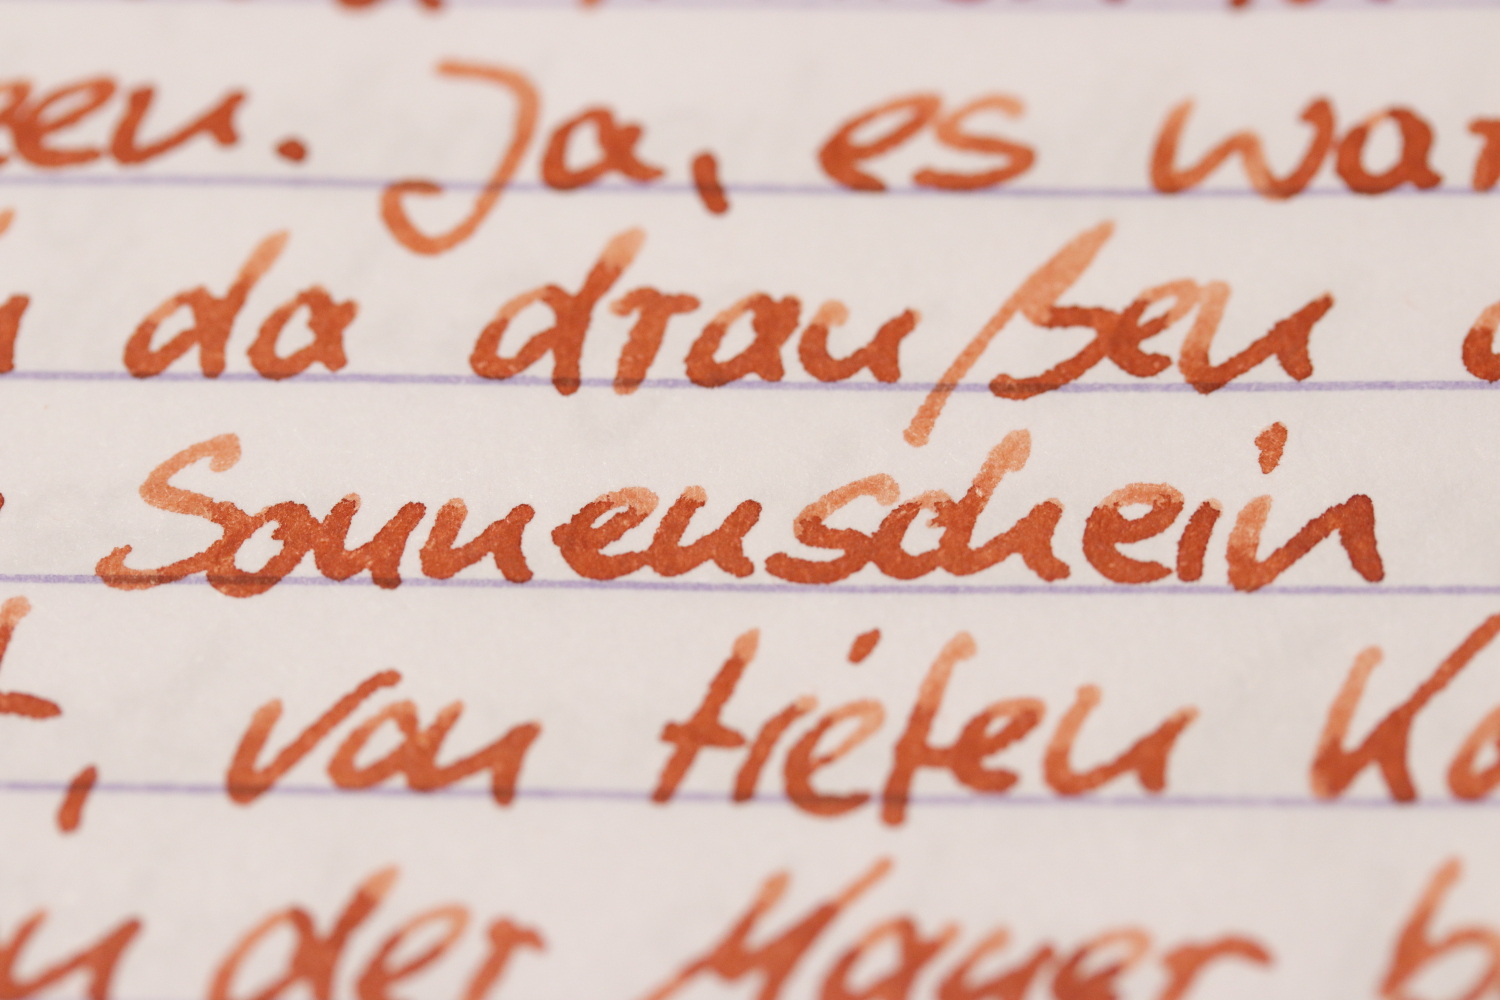 Ja, es war
da draußen
Sonnenschein
, von tiefen
der Mauer